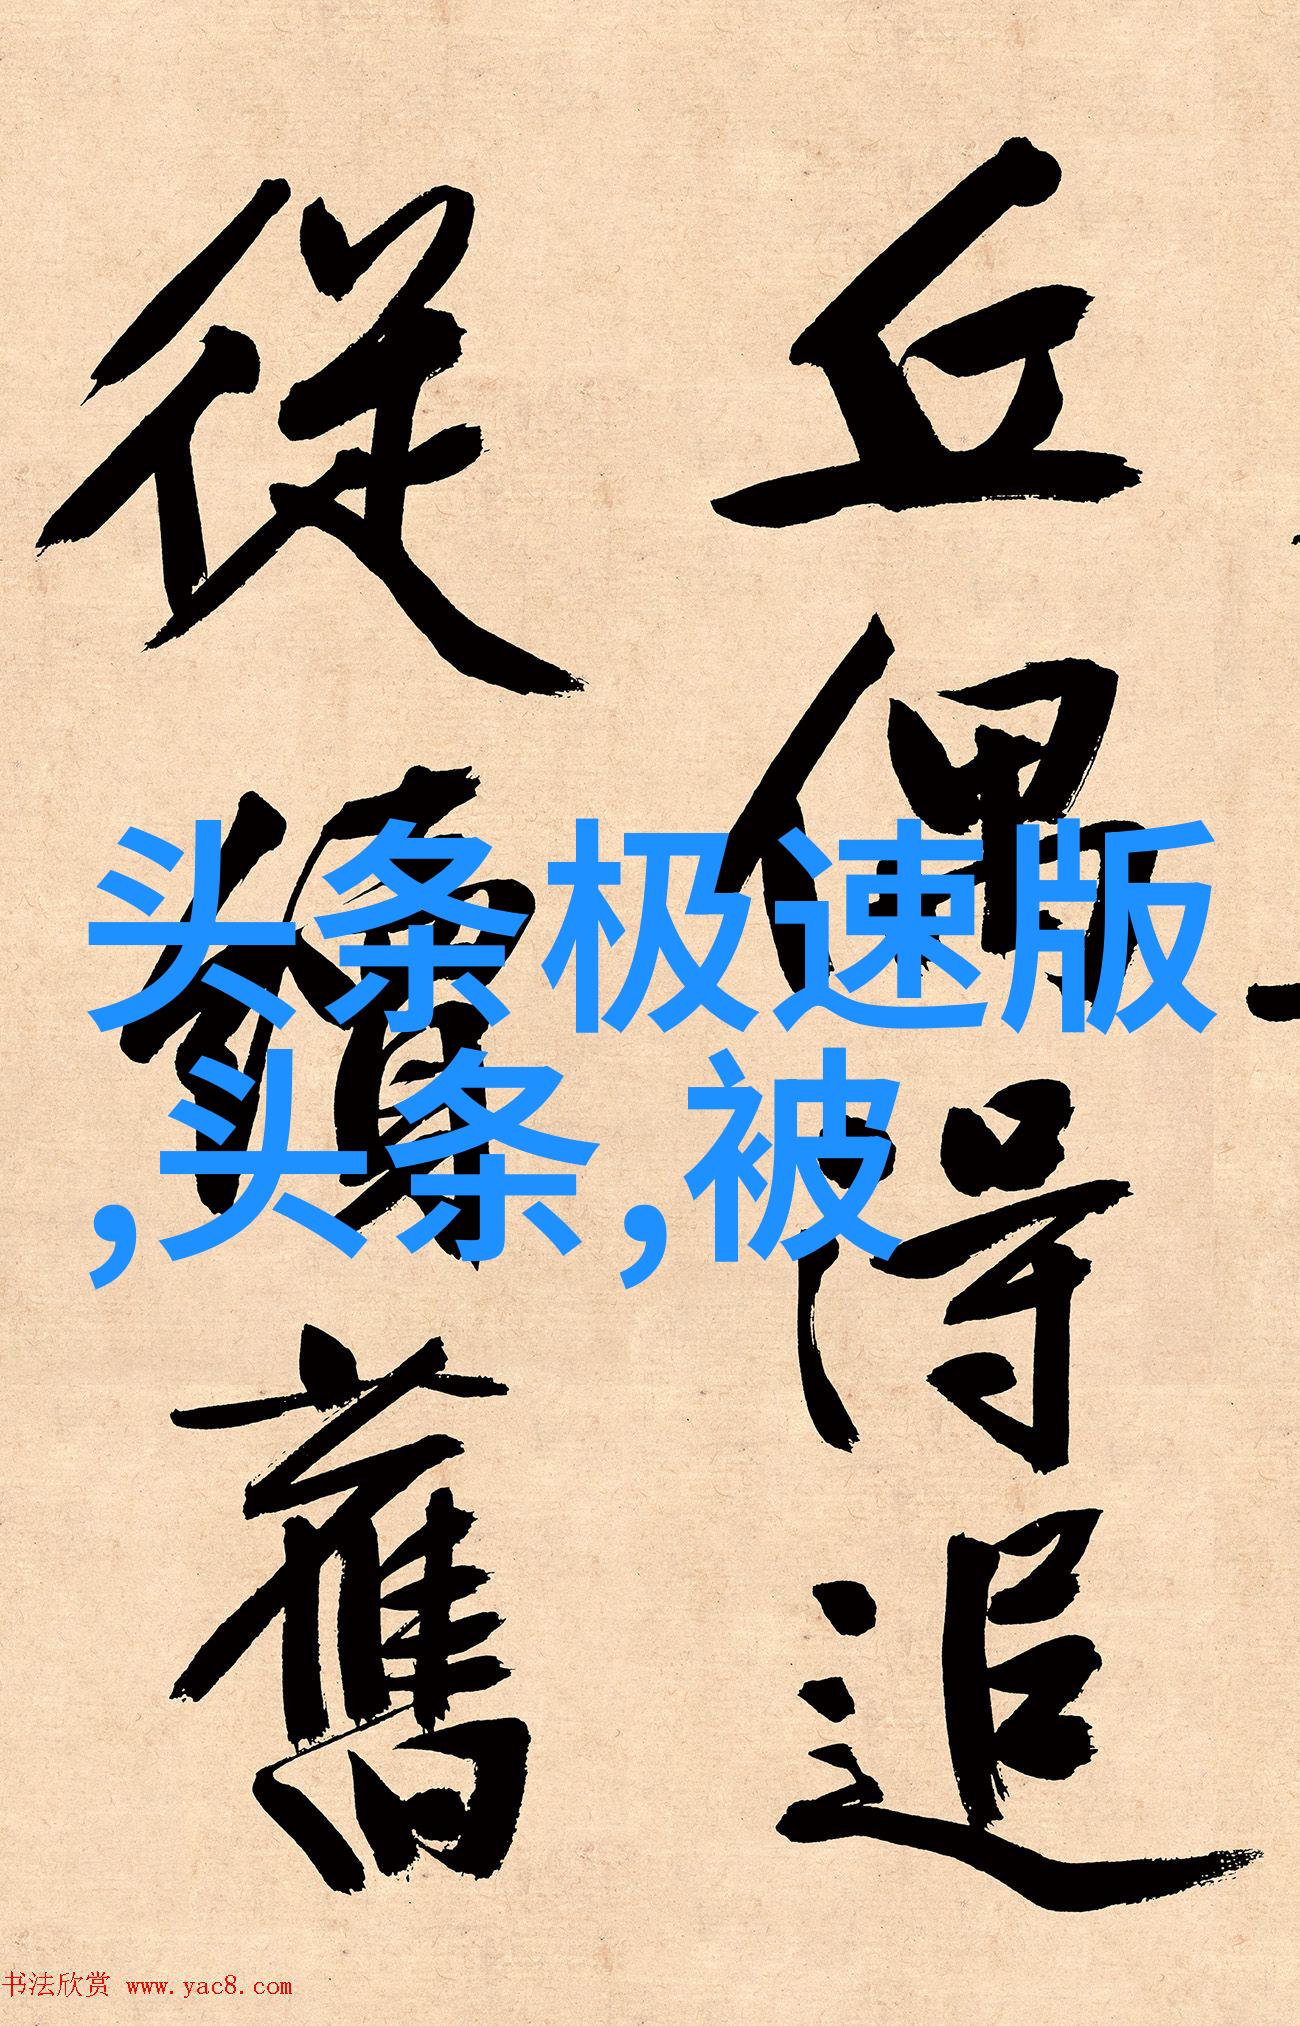 丘偶得追
從續舊
头条极速版
,头条,被
书法欣赏 www.yac8.com